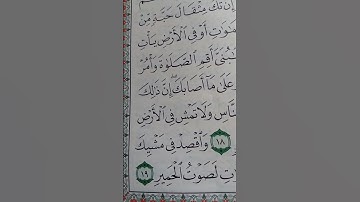 إِن تَكُ مِثْقَالَ حَبَّةٍ مِّنْ
مَٰوَٰتِ أَوْ فِي ٱلْأَرْضِ يَأْتِ
بُنَيَّ أَقِمِ ٱلصَّلَوٰةَ وَأْمُرْ
عَلَىٰ مَآ أَصَابَكَۖ إِنَّ ذَٰلِكَ
نَّاسِ وَلَا تَمْشِ فِي ٱلْأَرْضِ
١٨ وَٱقْصِدْ فِي مَشْيِكَ
تِ لَصَوْتُ ٱلْحَمِيرِ ١٩